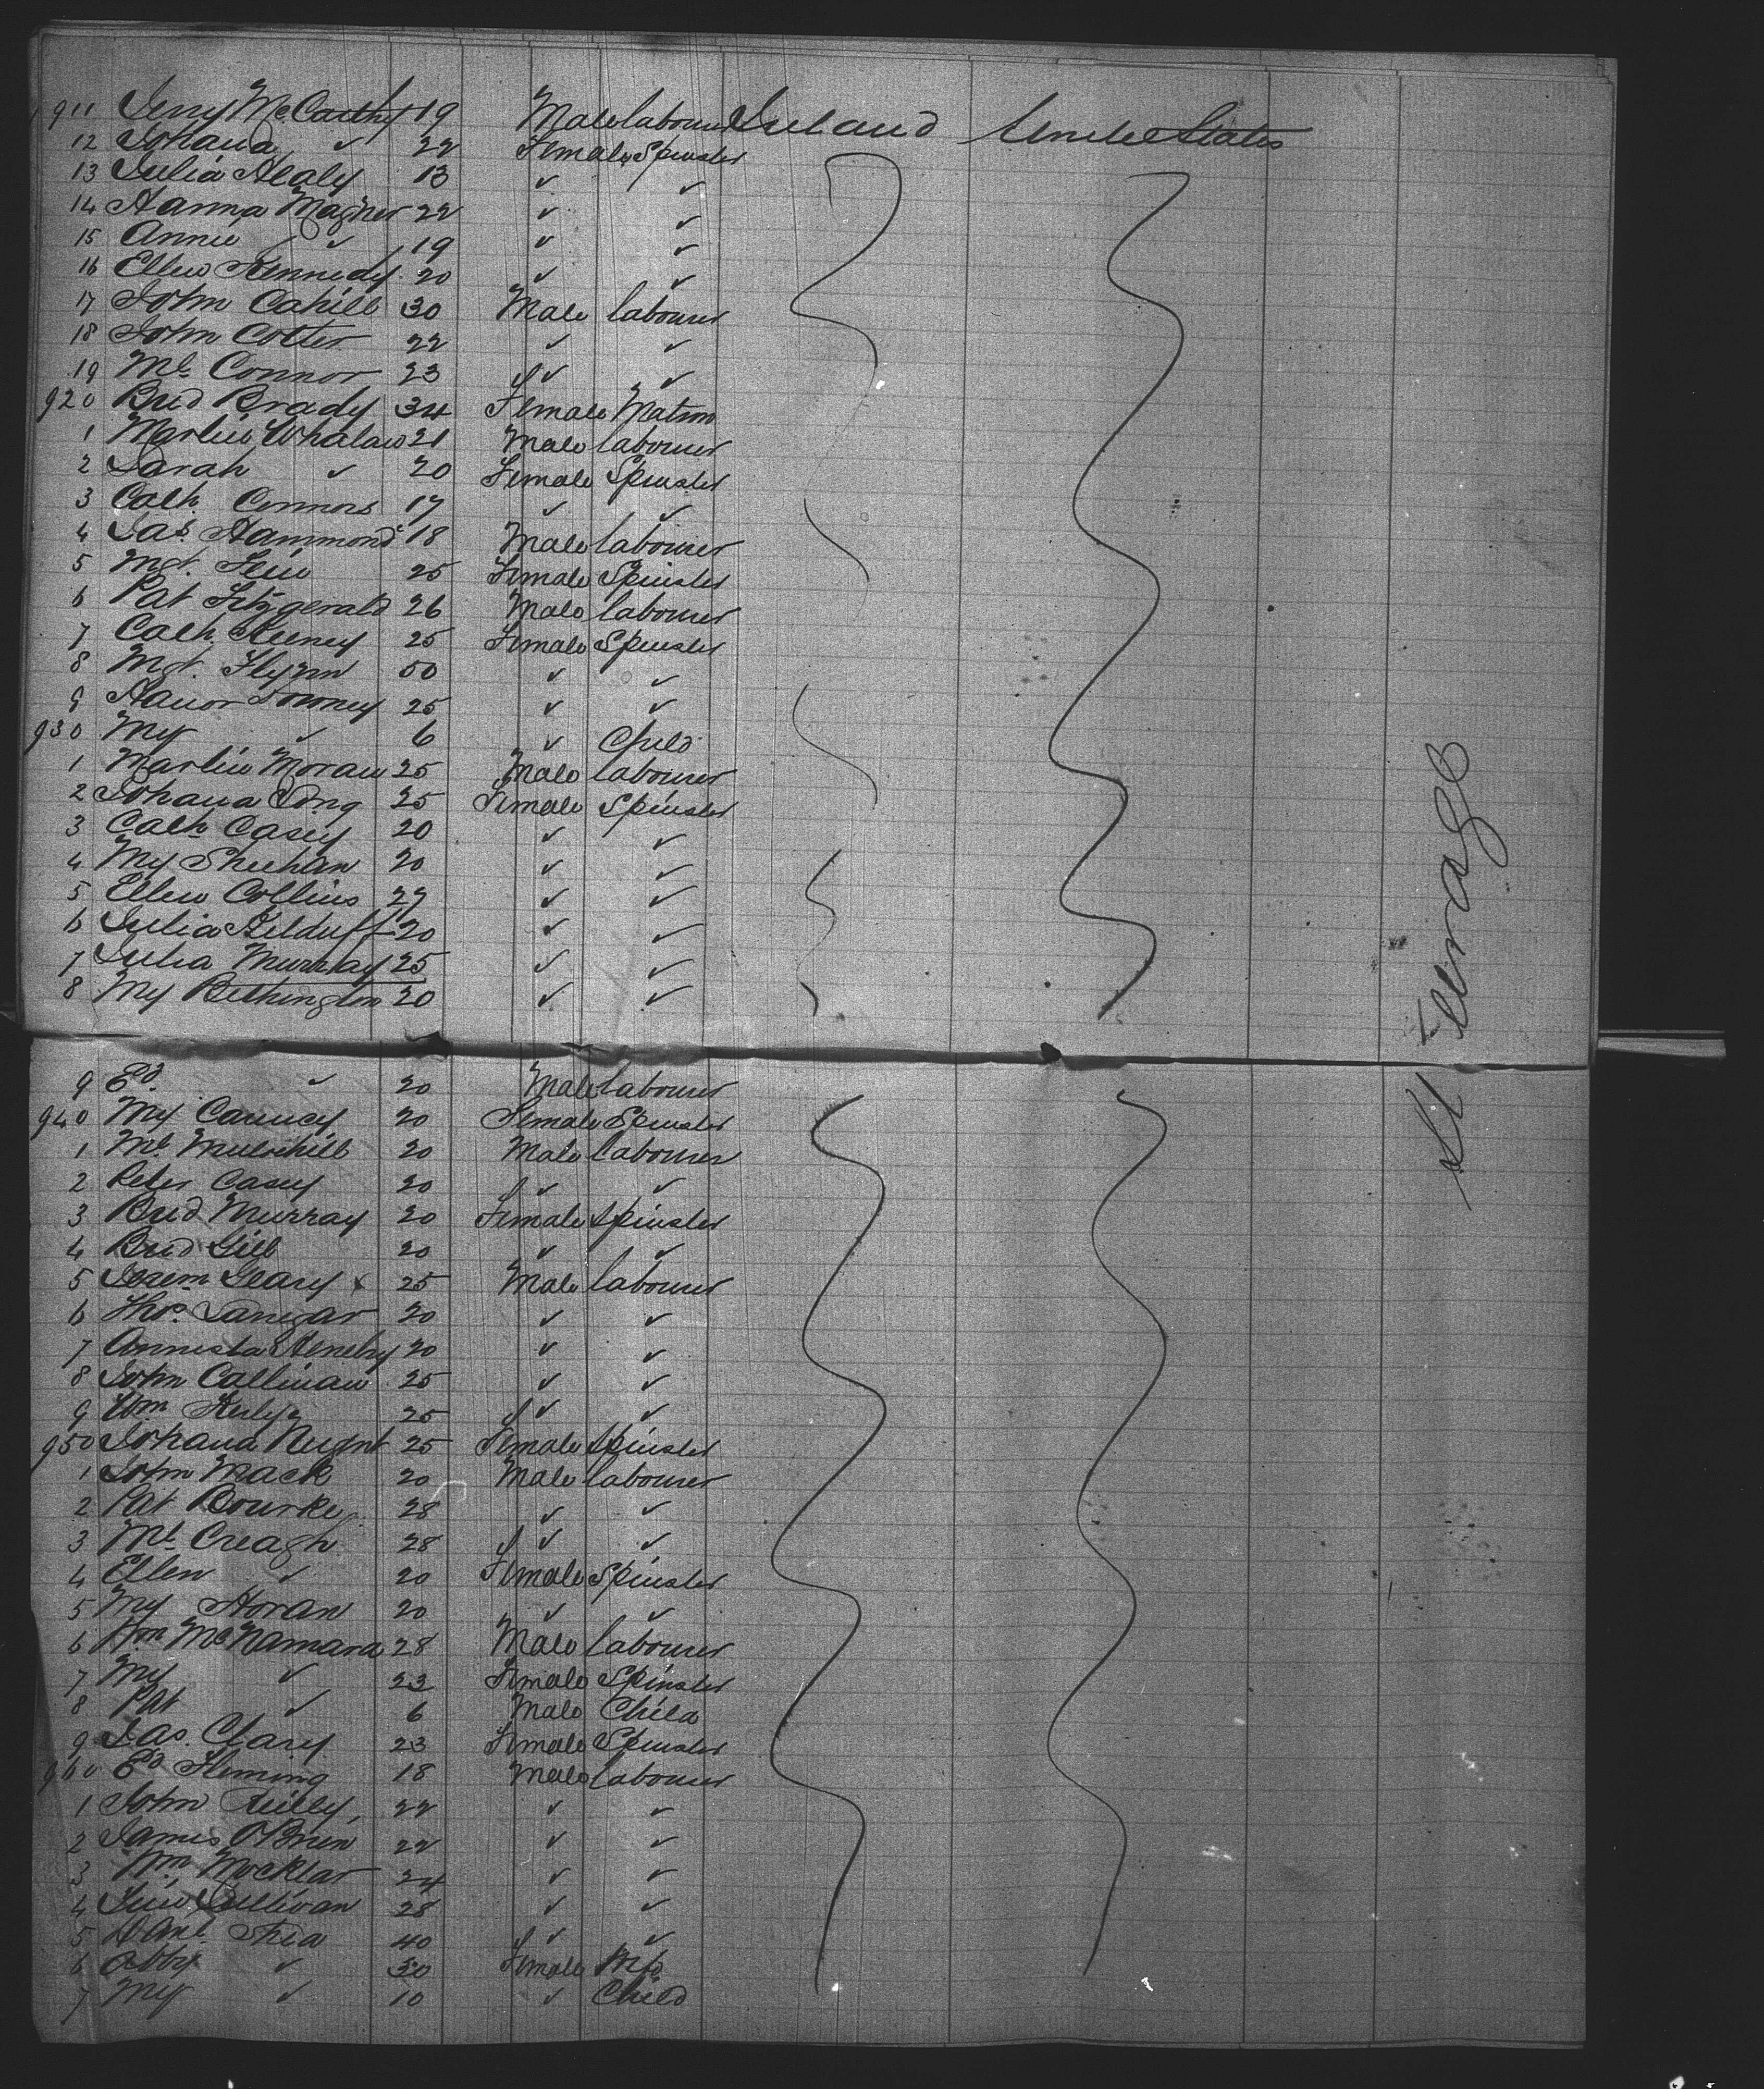 911 Jerry McCarthy 19 Male labourer Ireland United States
12 Johana ✓ 22 Female Spinster
13 Julia Healy 13 ✓ ✓
14 Hanna Magner 22 ✓ ✓
15 Annie ✓ 19 ✓ ✓
16 Ellen Kennedy 20 ✓ ✓
17 John Cahill 30 Male labourer
18 John Cotter 22 ✓ ✓
19 Ml Connor 23 ✓ ✓
920 Brid Brady 34 Female Matron
1 Martin Whalan 21 Male labourer
2 Sarah ✓ 20 Female Spinster
3 Cath Connors 17 ✓ ✓
4 Jas Hammond 18 Male labourer
5 Mgt. 25 Female Spinster
6 Pat Fitzgerald 26 Male labourer
7 Cath Keeney 25 Female Spinster
8 Mgt. Flynn 50 ✓ ✓
9 Hanor Downey 25 ✓ ✓
930 My ✓ 6 ✓ Child
1 Martin Moran 25 Male labourer
2 Johana 25 Female Spinster
3 Cath Casey 20 ✓ ✓
4 My Sheehan 20 ✓ ✓
5 Ellen Collins 27 ✓ ✓
6 Julia Kilduff 20 ✓ ✓
7 Julia Murray 25 ✓ ✓
8 My Bethington 20 ✓ ✓
9 Ed. ✓ 20 Male labourer
940 My 20 Female Spinster
1 Ml Mulvihill 20 Male labourer
2 Peter Casey 20 ✓ ✓
3 Brid Murray 20 Female Spinster
4 Brid Gill 20 ✓ ✓
5 Jerem Geary x 25 Male labourer
6 Thos. Lanegar 20 ✓ ✓
7 20 ✓ ✓
8 John Callinan 25 ✓ ✓
9 Wm 25 ✓ ✓
950 Johana Nugnt 25 Female Spinster
1 John Mack 20 Male labourer
2 Pat Bourke 28 ✓ ✓
3 Ml Creagh 28 ✓ ✓
4 Ellen ✓ 20 Female Spinster
5 My Horan 20 ✓ ✓
6 Wm McNamara 28 Male labourer
7 My ✓ 23 Female Spinster
8 Pat ✓ 6 Male Child
9 Jas. Clary 23 Female Spinster
960 Ed Fleming 18 Male labourer
1 John Reilly 22 ✓ ✓
2 James OBrien 22 ✓ ✓
3 Wm Mocklar 24 ✓ ✓
4 Sullivan 28 ✓ ✓
5 Danl Shea 40 ✓ ✓
6 Abby ✓ 30 Female Wife
7 My ✓ 10 ✓ Child